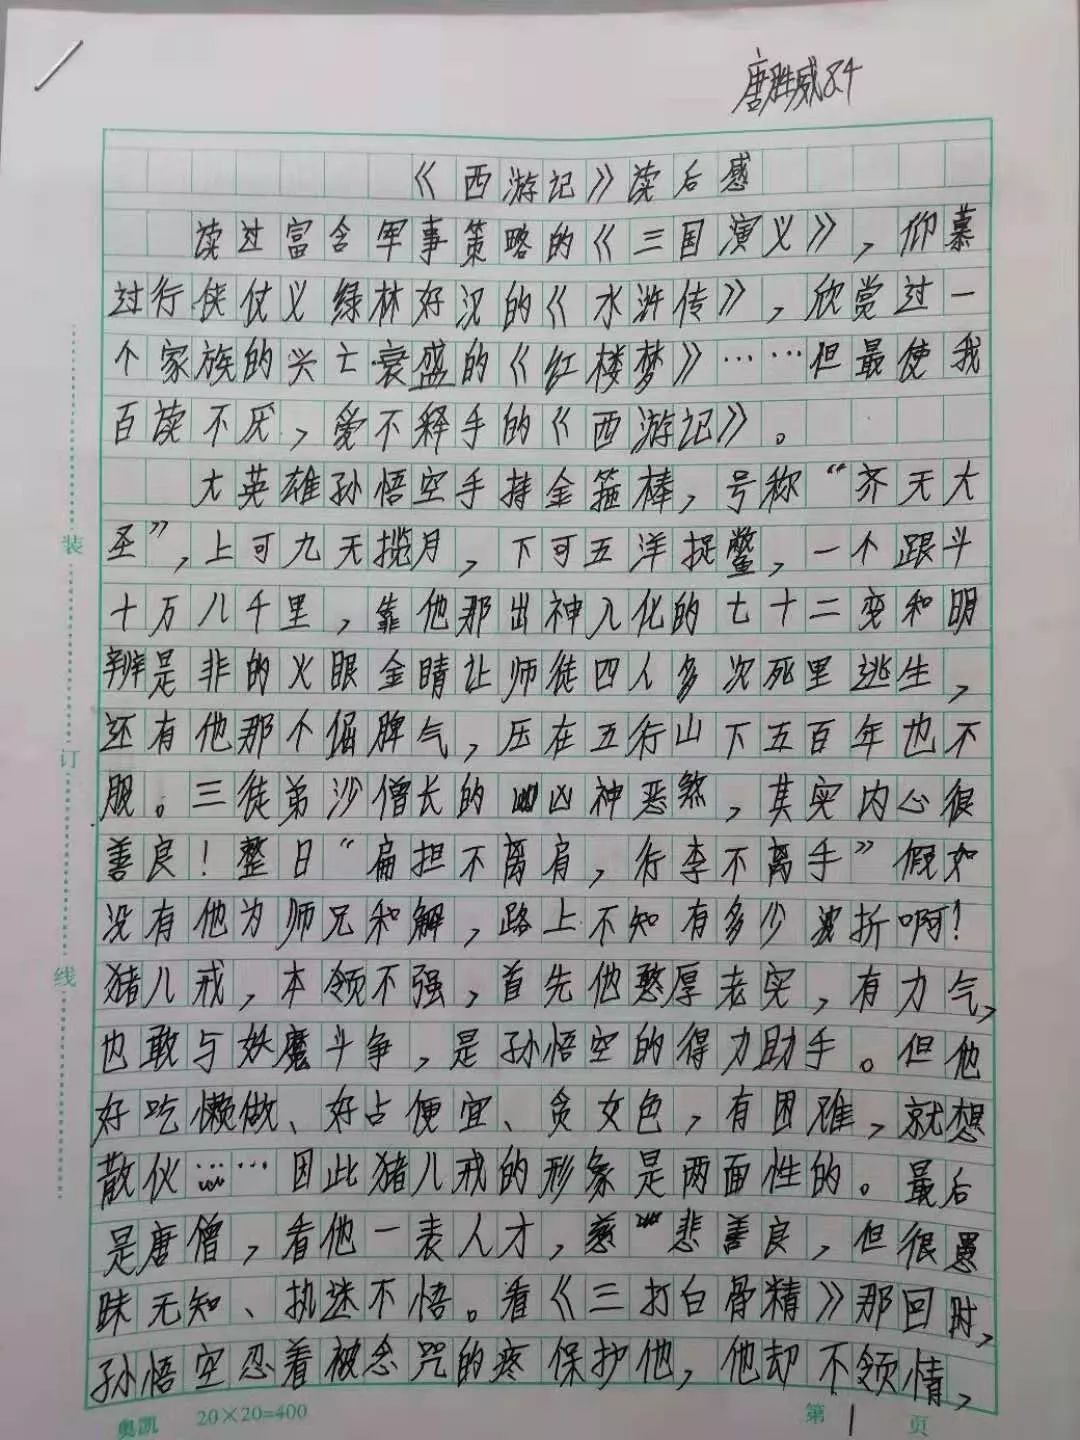 唐胜威84
《西游记》读后感
读过富含军事策略的《三国演义》，仰慕
过行侠仗义绿林好汉的《水浒传》，欣赏过一
个家族的兴亡衰盛的《红楼梦》……但最使我
百读不厌，爱不释手的《西游记》。
大英雄孙悟空手持金箍棒，号称“齐天大
圣”，上可九天揽月，下可五洋捉鳖，一个跟斗
十万八千里，靠他那出神入化的七十二变和明
辨是非的火眼金睛让师徒四人多次死里逃生，
还有他那个倔脾气，压在五行山下五百年也不
服。三徒弟沙僧长的凶神恶煞，其实内心很
善良！整日“扁担不离肩，行李不离手”假如
没有他为师兄和解，路上不知有多少波折啊！
猪八戒，本领不强，首先他憨厚老实，有力气，
也敢与妖魔斗争，是孙悟空的得力助手。但他
好吃懒做、好占便宜、贪女色，有困难，就想
散伙……因此猪八戒的形象是两面性的。最后
是唐僧，看他一表人才，慈悲善良，但很愚
昧无知、执迷不悟。看《三打白骨精》那回时，
孙悟空忍着被念咒的疼保护他，他却不领情，
装
订
线
奥凯 20×20=400
第1页